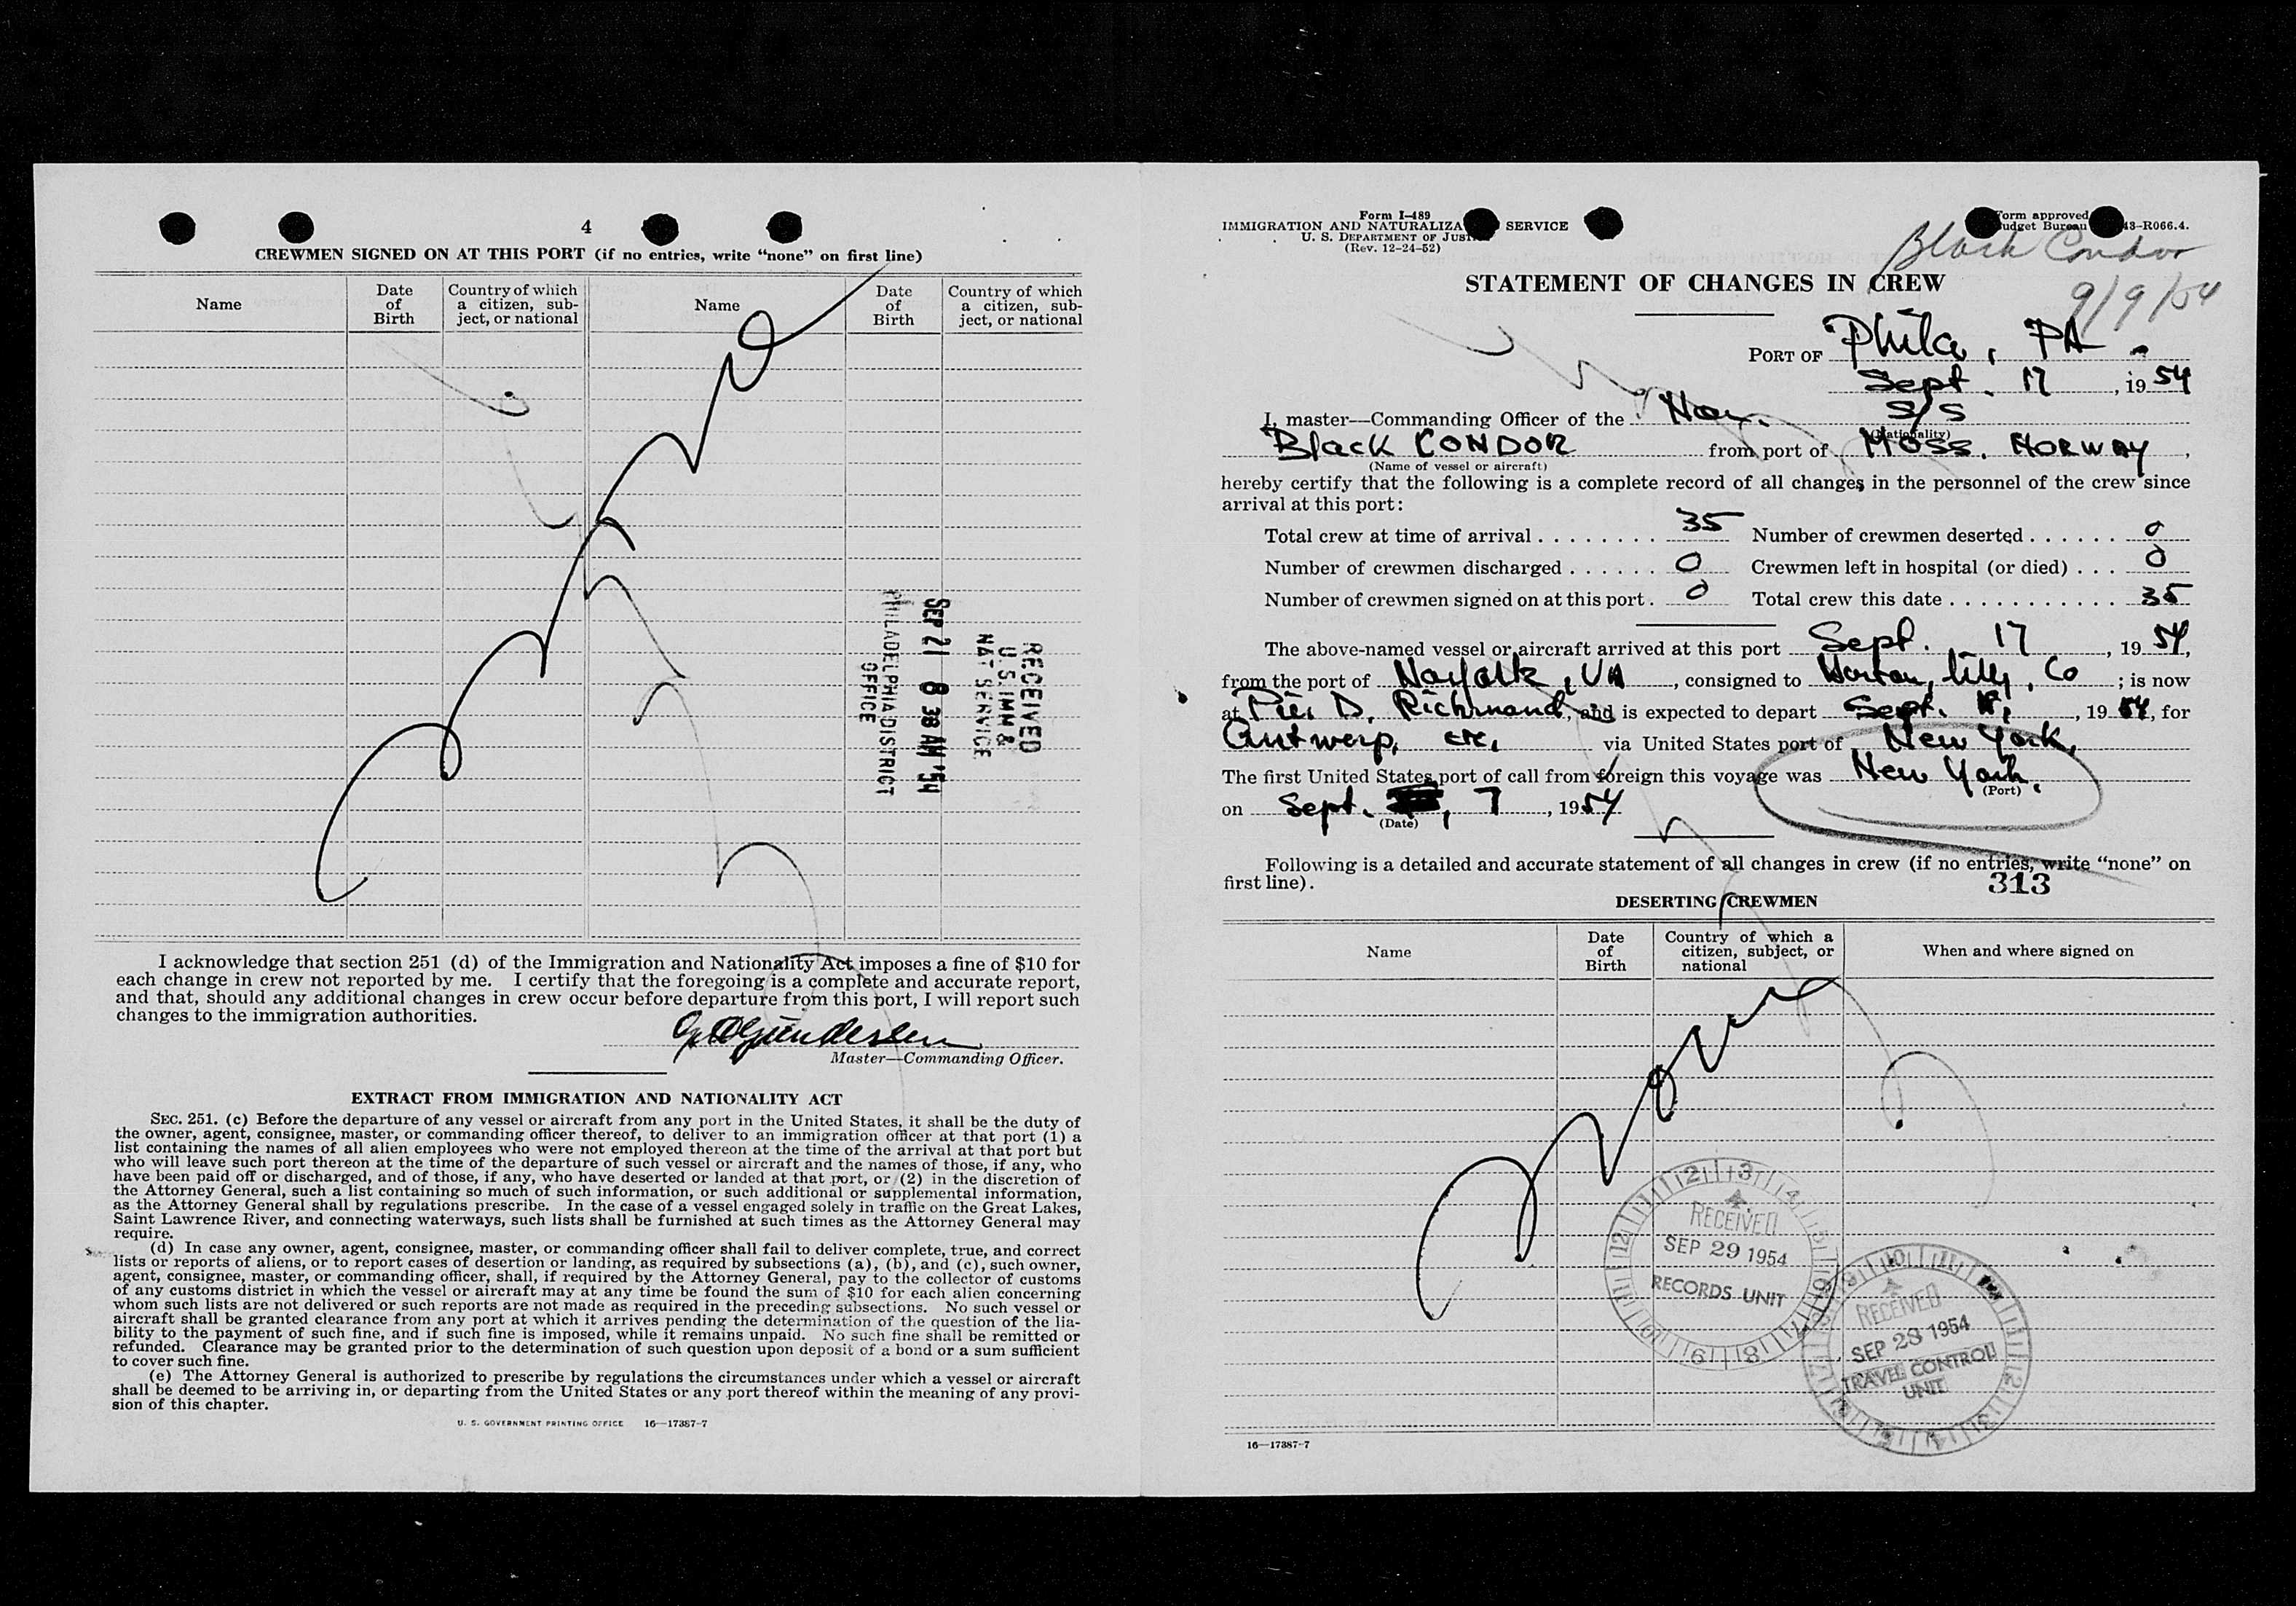 4
CREWMEN SIGNED ON AT THIS PORT (if no entries, write "none" on first line)
Name
Date of Birth
Country of which a citizen, subject, or national
Name
Date of Birth
Country of which a citizen, sub-ject, or national
None
RECEIVED
U. S. IMM &
NAT SERVICE
SEP 21 8 38 AM '54
PHILADELPHIA DISTRICT
OFFICE
I acknowledge that section 251 (d) of the Immigration and Nationality Act imposes a fine of $10 for
each change in crew not reported by me. I certify that the foregoing is a complete and accurate report,
and that, should any additional changes in crew occur before departure from this port, I will report such
changes to the immigration authorities.
Gundersen
Master—Commanding Officer.
EXTRACT FROM IMMIGRATION AND NATIONALITY ACT
SEC. 251. (c) Before the departure of any vessel or aircraft from any port in the United States, it shall be the duty of
the owner, agent, consignee, master, or commanding officer thereof, to deliver to an immigration officer at that port (1) a
list containing the names of all alien employees who were not employed thereon at the time of the arrival at that port but
who will leave such port thereon at the time of the departure of such vessel or aircraft and the names of those, if any, who
have been paid off or discharged, and of those, if any, who have deserted or landed at that port, or (2) in the discretion of
the Attorney General, such a list containing so much of such information, or such additional or supplemental information,
as the Attorney General shall by regulations prescribe. In the case of a vessel engaged solely in traffic on the Great Lakes,
Saint Lawrence River, and connecting waterways, such lists shall be furnished at such times as the Attorney General may
require.
(d) In case any owner, agent, consignee, master, or commanding officer shall fail to deliver complete, true, and correct
lists or reports of aliens, or to report cases of desertion or landing, as required by subsections (a), (b), and (c), such owner,
agent, consignee, master, or commanding officer, shall, if required by the Attorney General, pay to the collector of customs
of any customs district in which the vessel or aircraft may at any time be found the sum of $10 for each alien concerning
whom such lists are not delivered or such reports are not made as required in the preceding subsections. No such vessel or
aircraft shall be granted clearance from any port at which it arrives pending the determination of the question of the lia-
bility to the payment of such fine, and if such fine is imposed, while it remains unpaid. No such fine shall be remitted or
refunded. Clearance may be granted prior to the determination of such question upon deposit of a bond or a sum sufficient
to cover such fine.
(e) The Attorney General is authorized to prescribe by regulations the circumstances under which a vessel or aircraft
shall be deemed to be arriving in, or departing from the United States or any port thereof within the meaning of any provi-
sion of this chapter.
U. S. GOVERNMENT PRINTING OFFICE 16—17387-7
Form I-489
IMMIGRATION AND NATURALIZA SERVICE
U. S. DEPARTMENT OF JUST
(Rev. 12-24-52)
Form approved
Budget Bureau 43-R066.4.
Black Condor
9/9/54
STATEMENT OF CHANGES IN CREW
PORT OF Phila, PA.
Sept. 17, 19 54
I, master—Commanding Officer of the Nor. S/S
(Nationality)
Black CONDOR from port of MOSS, NORWAY,
(Name of vessel or aircraft)
hereby certify that the following is a complete record of all changes in the personnel of the crew since
arrival at this port:
Total crew at time of arrival 35 Number of crewmen deserted 0
Number of crewmen discharged 0 Crewmen left in hospital (or died) 0
Number of crewmen signed on at this port 0 Total crew this date 35
The above-named vessel or aircraft arrived at this port Sept. 17, 19 54,
from the port of Norfolk, VA, consigned to Norton, Lilly, Co; is now
at Pier D, Richmond, and is expected to depart Sept., 19 54, for
Antwerp, etc, via United States port of New York,
The first United States port of call from foreign this voyage was New York.
(Port)
on Sept. 7, 1954
(Date)
Following is a detailed and accurate statement of all changes in crew (if no entries, write "none" on
first line).
313
DESERTING CREWMEN
Name
Date of Birth
Country of which a citizen, subject, or national
When and where signed on
None
RECEIVED
SEP 29 1954
RECORDS UNIT
RECEIVED
SEP 28 1954
TRAVEL CONTROL
UNIT
16—17387-7